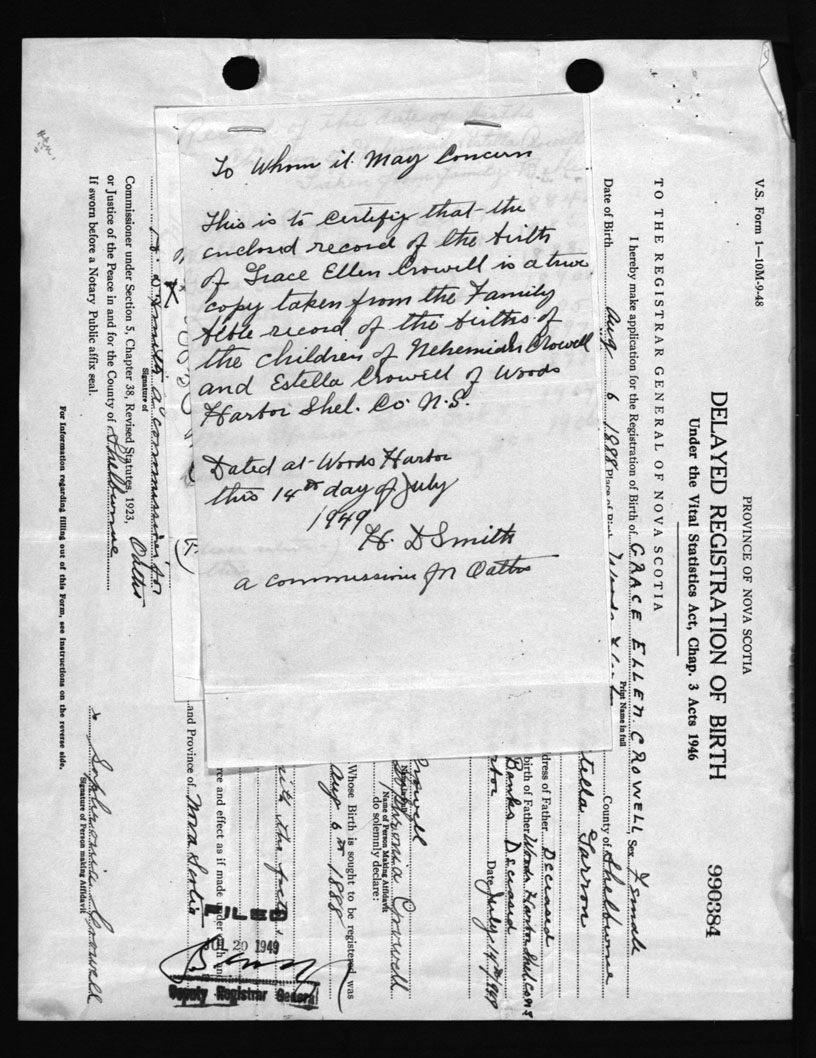 To Whom it May Concern
This is to Certifiy that the
enclosed record of the birth
of Grace Ellen Crowell is a true
copy taken from the Family
record of the births of
the children of Nehemiah Crowell
and Estella Crowell of Woods
Harbor Shel. Co. N.S.
Dated at Woods Harbor
this 14th day of July
1949
H. D Smith
a commissioner for Oaths
V.S. Form 1—10M-9-48
PROVINCE OF NOVA SCOTIA
DELAYED REGISTRATION OF BIRTH
990384
Under the Vital Statistics Act, Chap. 3 Acts 1946
TO THE REGISTRAR GENERAL OF NOVA SCOTIA
I hereby make application for the Registration of Birth of GRACE ELLEN CROWELL, Sex Female
Print Name in full
Date of Birth Aug 6 1888 Place of Birth Woods County of Shelburne
dress of Father Deceased
birth of Father Woods Harbor Shel Co N.S
Deceased
Date July 14th 1949
Crowell
Sophronia Crowell
Name of Person Making Affidavit
do solemnly declare:
Whose Birth is sought to be registered was
Aug 6th 1888
with the facts
rce and effect as if made under oath and
and Province of Nova Scotia
FILED
JUL 20 1949
Deputy Registrar General
H. D Smith a commissioner for Oaths
Signature of
Commissioner under Section 5, Chapter 38, Revised Statutes, 1923,
or Justice of the Peace in and for the County of Shelburne
If sworn before a Notary Public affix seal.
Sophronia Crowell
Signature of Person making Affidavit
For Information regarding filling out of this Form, see Instructions on the reverse side.